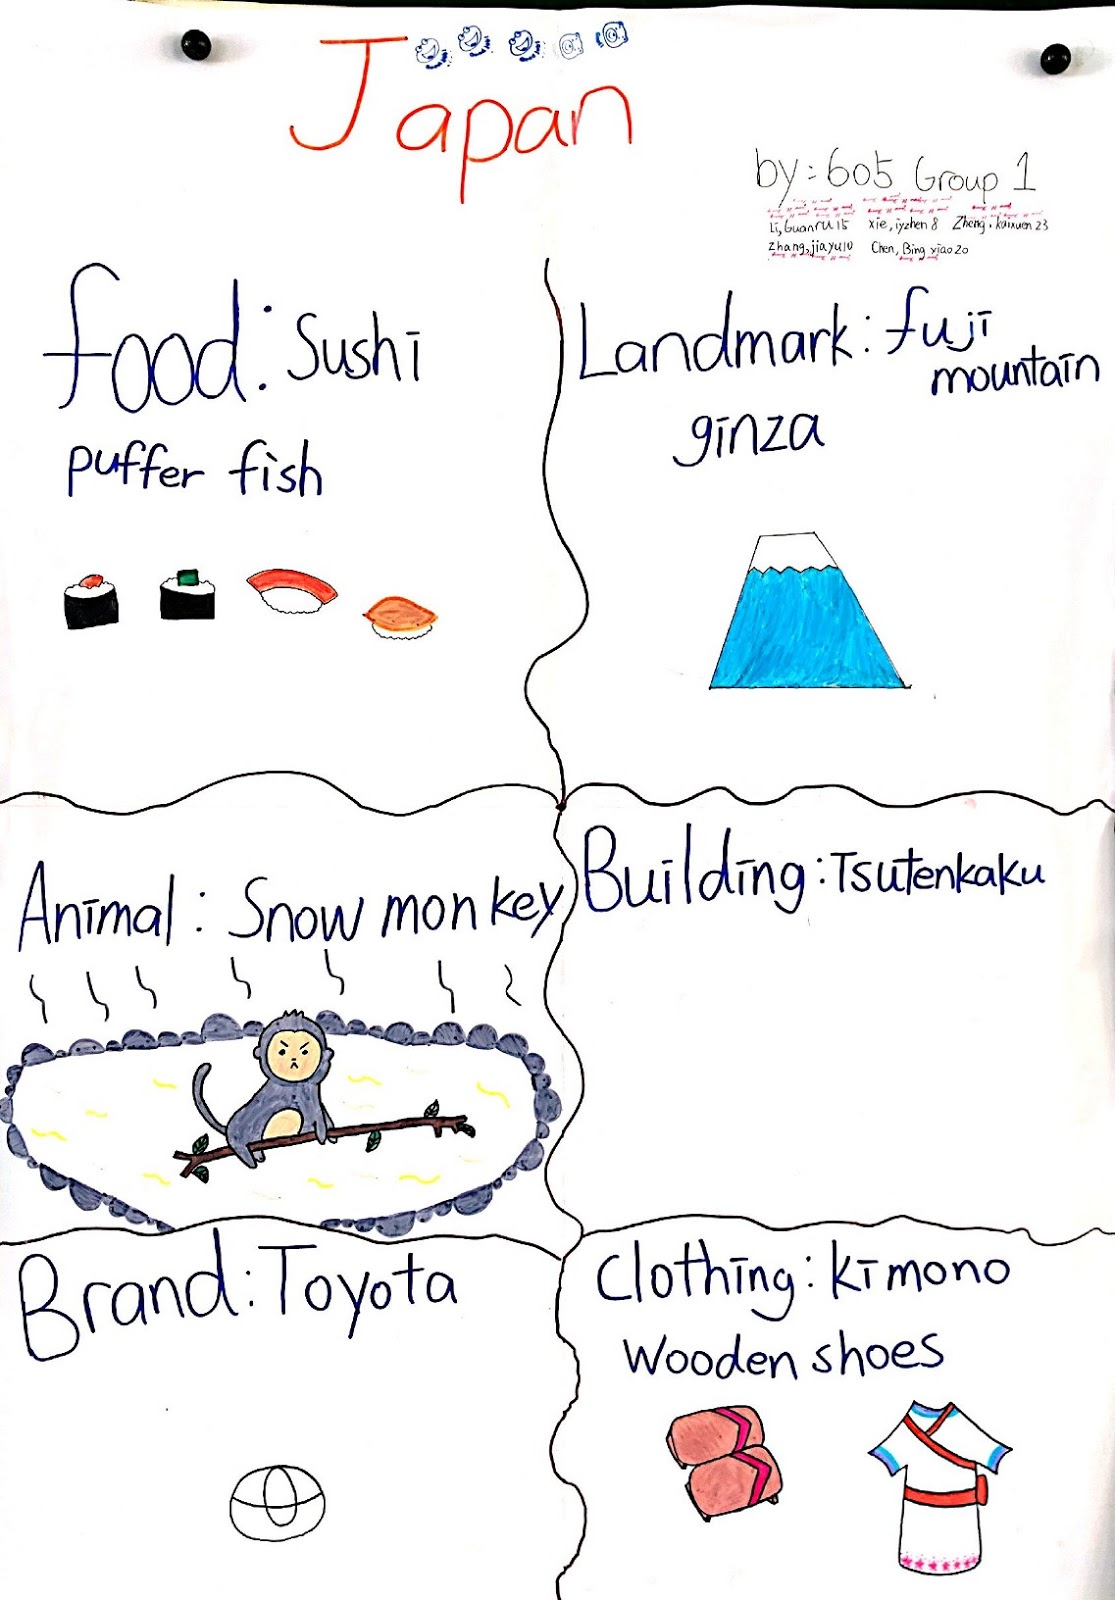 Japan
by: 605 Group 1
Li, Guanru 15 xie, iyzhen 8 Zheng, kaixuen 23
Zhang, jiayu 10 Chen, Bing xiao 20
food: Sushi
puffer fish
Landmark: fuji
mountain
ginza
Animal: Snow monkey
Building: Tsutenkaku
Brand: Toyota
Clothing: kimono
Wooden shoes